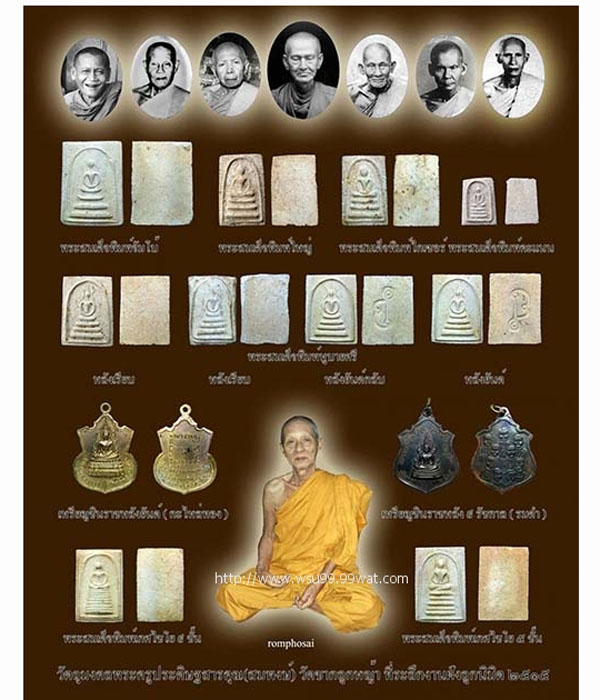 พระสมเด็จพิมพ์จัมโบ้ พระสมเด็จพิมพ์ใหญ่ พระสมเด็จพิมพ์ไกเซอร์ พระสมเด็จพิมพ์คะแนน
พระสมเด็จพิมพ์หูบายศรี
หลังเรียบ หลังเรียบ หลังยันต์กลับ หลังยันต์
เหรียญชินราชหลังยันต์ ( กะไหล่ทอง ) เหรียญชินราชหลัง ๙ รัชกาล ( รมดำ )
http://www.wsu99.99wat.com
พระสมเด็จพิมพ์เกศไชโย ๙ ชั้น พระสมเด็จพิมพ์เกศไชโย ๕ ชั้น
romphosai
วัตถุมงคลพระครูประดิษฐสารคุณ(สมพงษ์) วัดชากลูกหญ้า ที่ระลึกงานฝังลูกนิมิต ๒๕๑๕